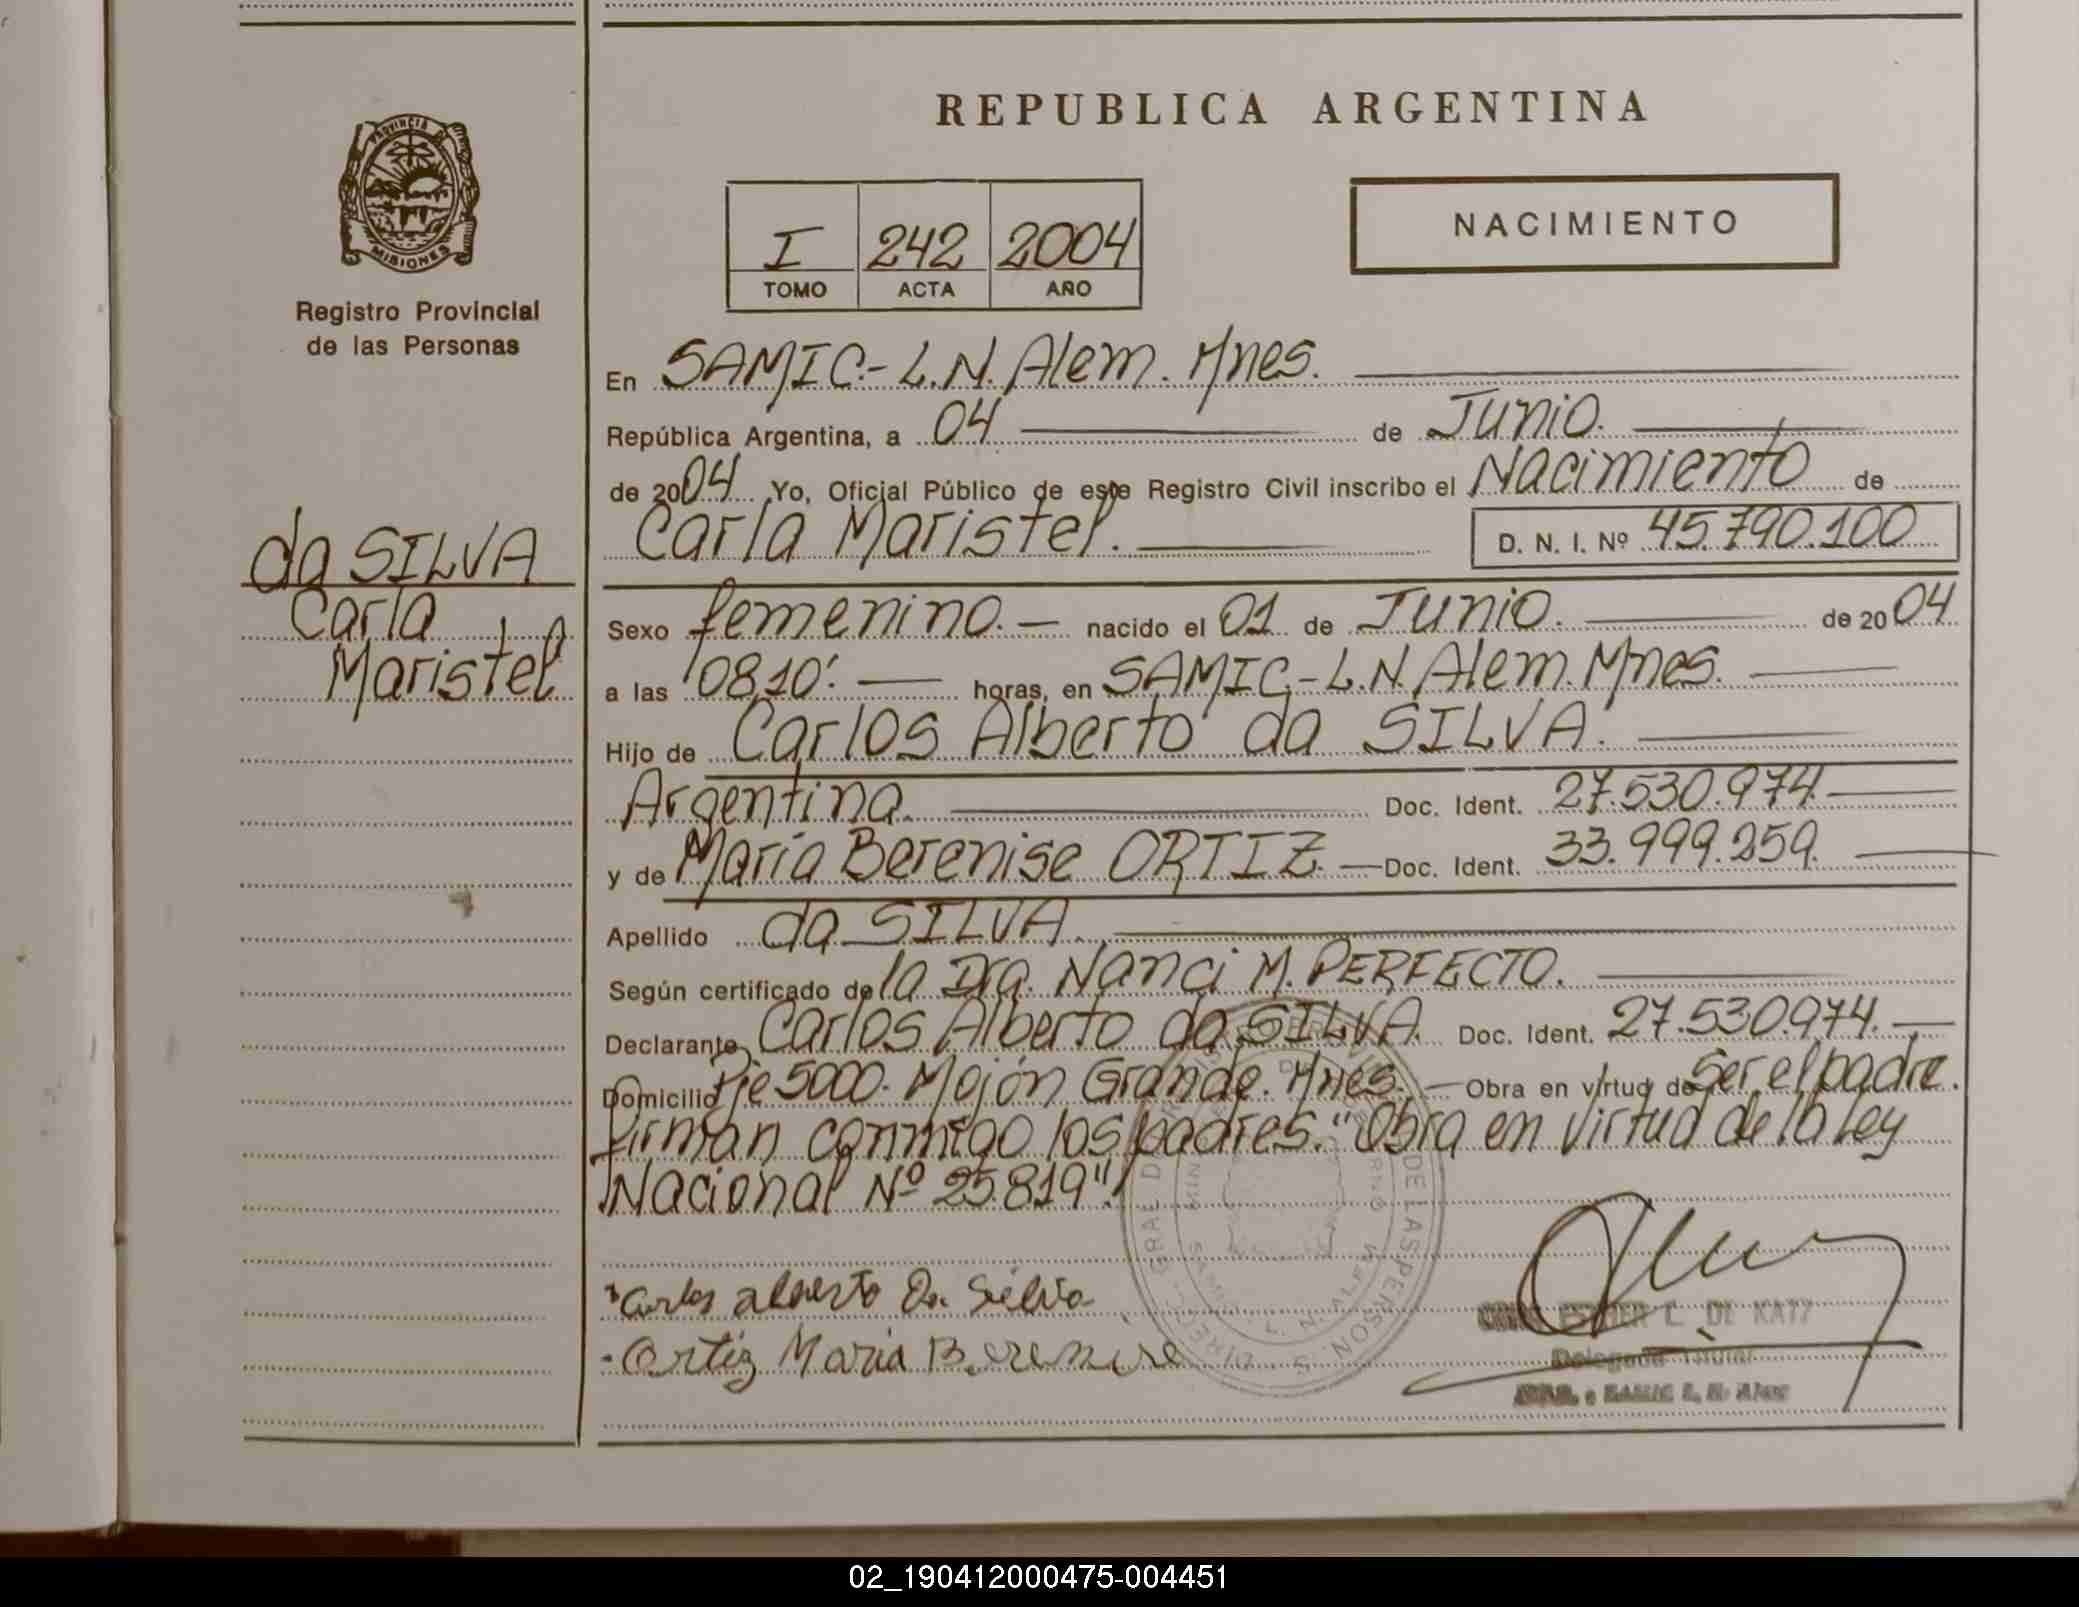 REPUBLICA ARGENTINA
PROVINCIA DE
MISIONES
Registro Provincial
de las Personas
I 242 2004
TOMO ACTA AÑO
NACIMIENTO
En SAMIC.- L.N. Alem. Mnes.
República Argentina, a 04 de Junio.
de 2004 Yo, Oficial Público de este Registro Civil inscribo el Nacimiento de
Carla Maristel. D. N. I. Nº 45.790.100
da SILVA
Carla
Maristel
Sexo femenino. nacido el 01 de Junio. de 2004
a las 08,10'. horas, en SAMIC.- L.N. Alem. Mnes.
Hijo de Carlos Alberto da SILVA.
Argentina. Doc. Ident. 27.530.974.
y de María Berenise ORTIZ. Doc. Ident. 33.999.259.
Apellido da SILVA.
Según certificado de la Dra. Nanci M. PERFECTO.
Declarante Carlos Alberto da SILVA. Doc. Ident. 27.530.974.
Domicilio Pje 5000. Mojón Grande. Mnes. Obra en virtud de Ser el padre.
firman conmigo los padres. "Obra en virtud de la Ley
Nacional Nº 25.819".
Carlos alberto Da Silva
Ortiz Maria Berenise
ESTHER C. DE KATZ
Delegada Titular
DE LAS PERSONAS
L. N. ALEM
02_190412000475-004451